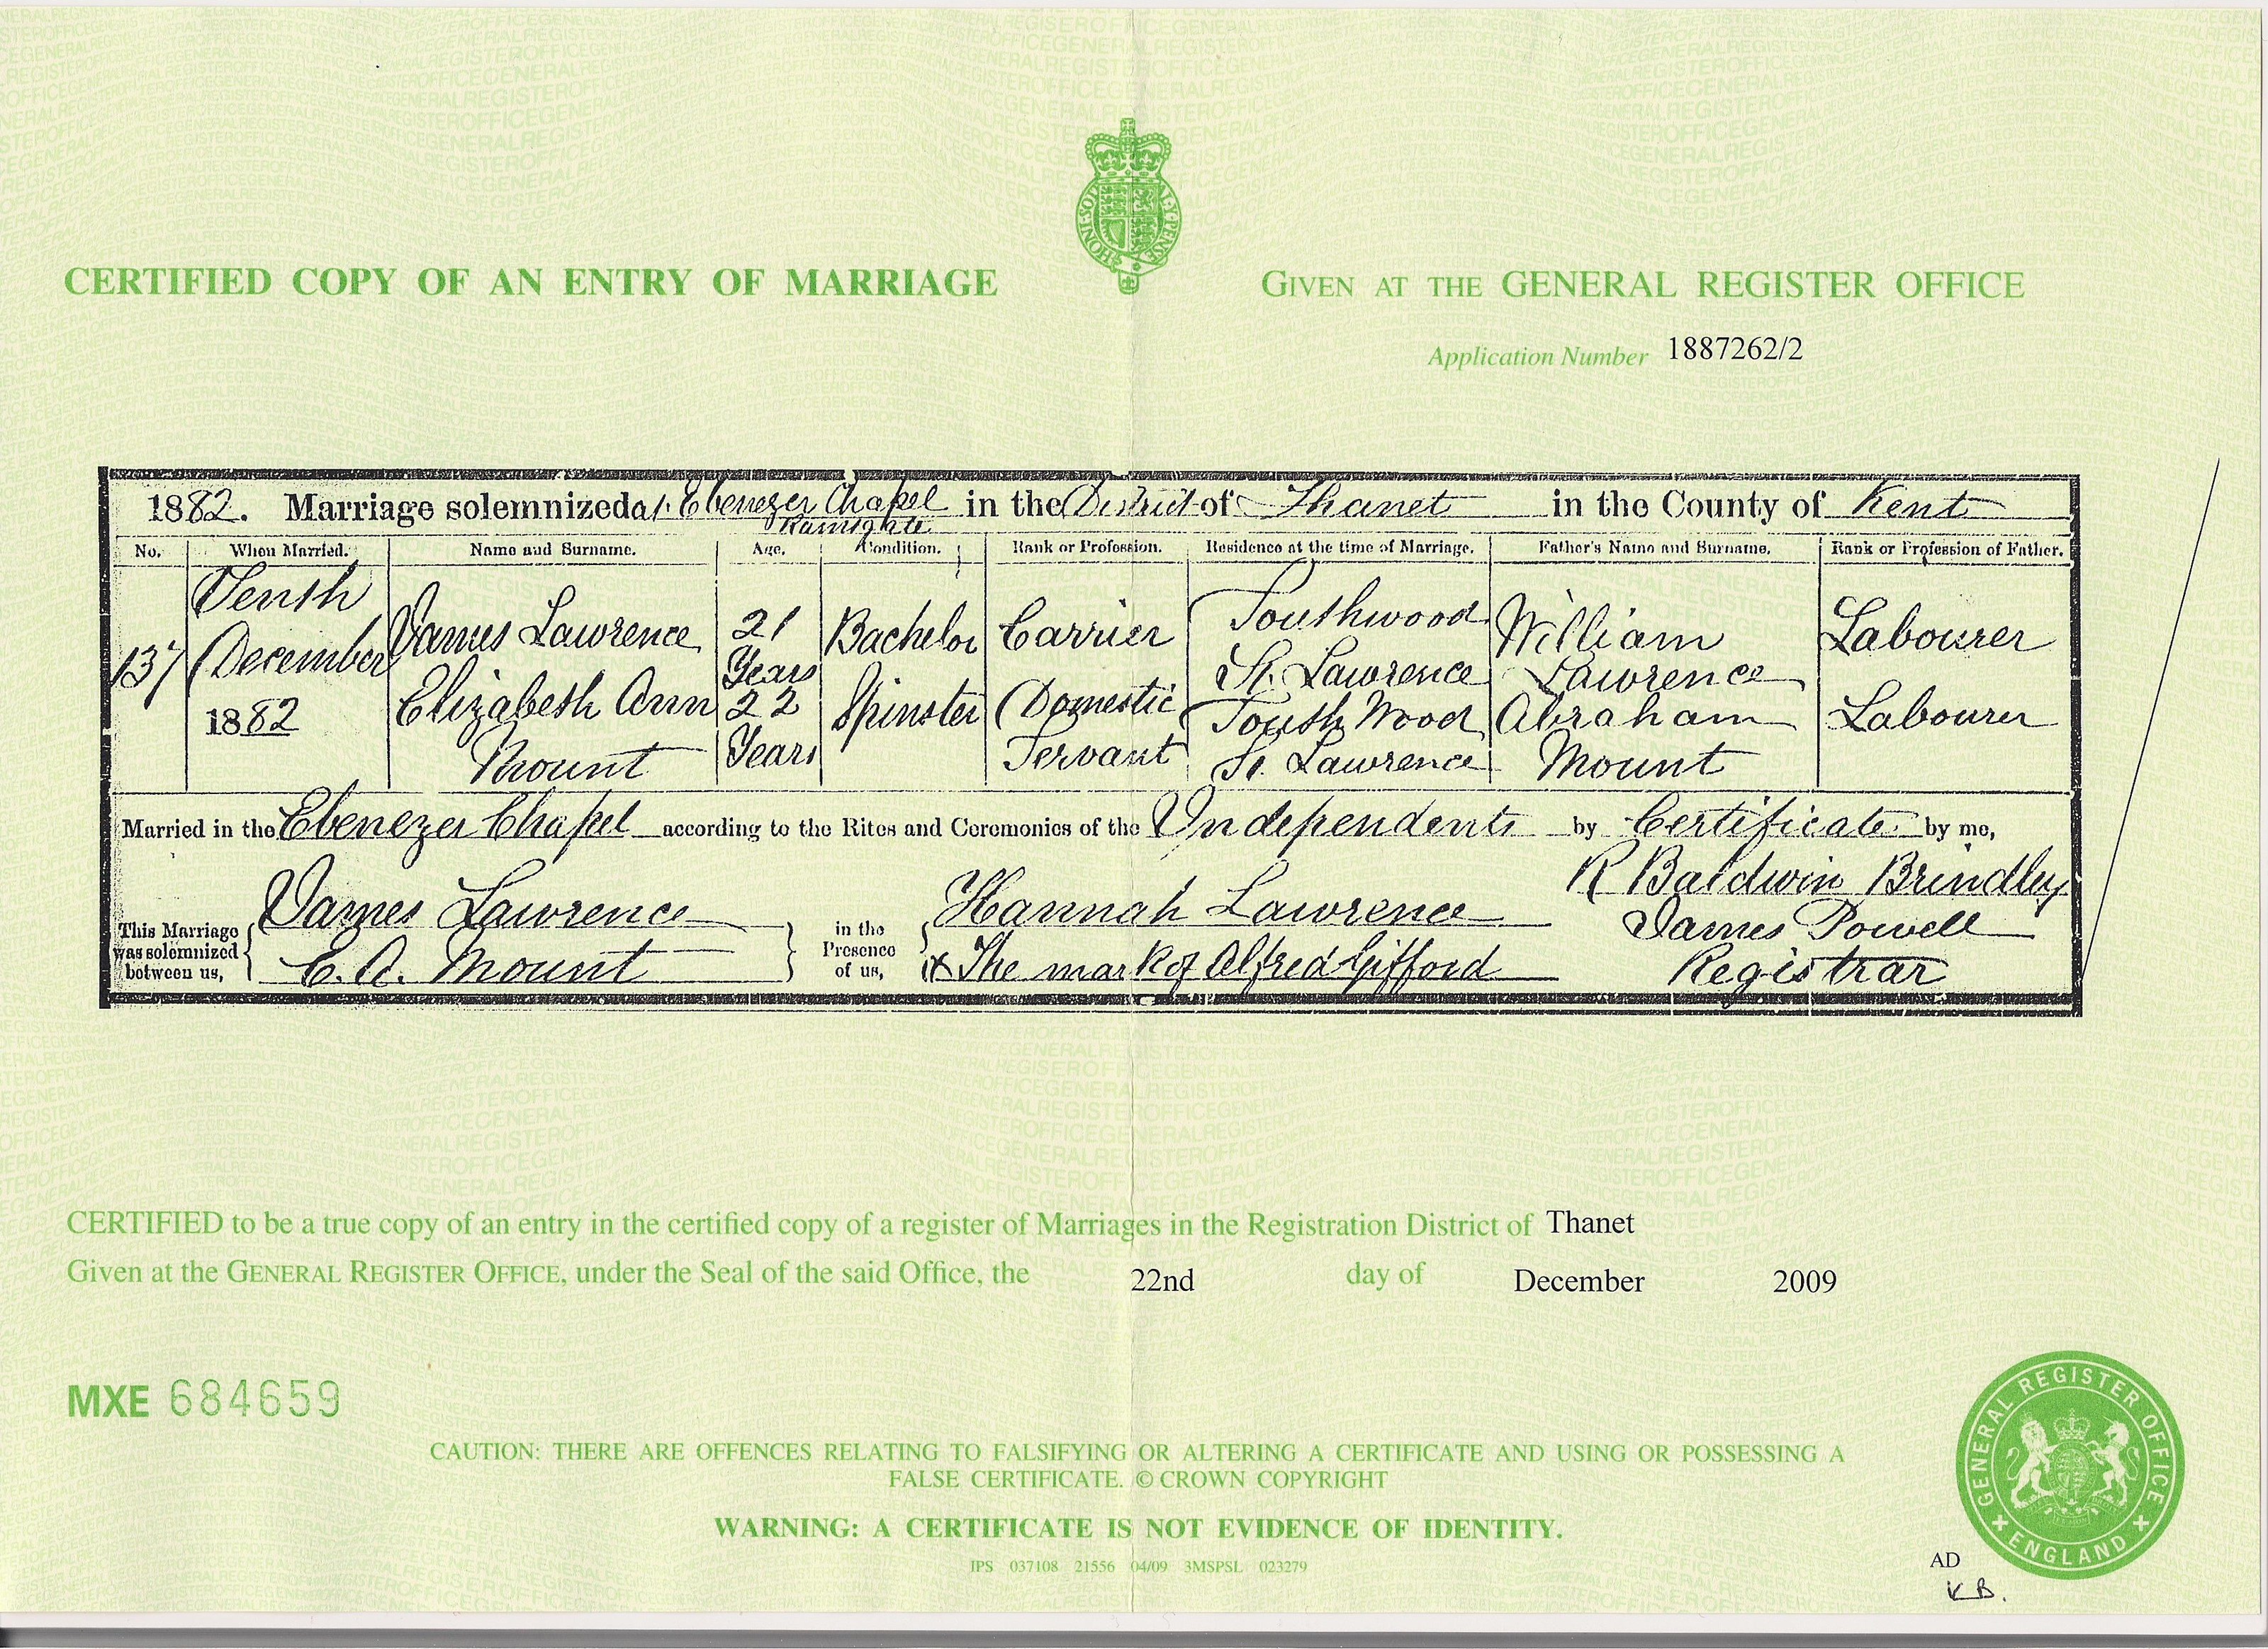 HONI·SOIT·Q·MAL·Y·PENSE
CERTIFIED COPY OF AN ENTRY OF MARRIAGE
GIVEN AT THE GENERAL REGISTER OFFICE
Application Number 1887262/2
1882. Marriage solemnized at Ebenezer Chapel in the District of Thanet in the County of Kent
Ramsgate
No. When Married. Name and Surname. Age. Condition. Rank or Profession. Residence at the time of Marriage. Father's Name and Surname. Rank or Profession of Father.
137 Tenth December 1882
James Lawrence 21 Years Bachelor Carrier Southwood St. Lawrence William Lawrence Labourer
Elizabeth Ann Mount 22 Years Spinster Domestic Servant South Wood St. Lawrence Abraham Mount Labourer
Married in the Ebenezer Chapel according to the Rites and Ceremonies of the Independents by Certificate by me,
R Baldwin Brindley
This Marriage was solemnized between us, James Lawrence
E. A. Mount
in the Presence of us, Hannah Lawrence
X The mark of Alfred Gifford
James Powell
Registrar
CERTIFIED to be a true copy of an entry in the certified copy of a register of Marriages in the Registration District of Thanet
Given at the GENERAL REGISTER OFFICE, under the Seal of the said Office, the 22nd day of December 2009
MXE 684659
CAUTION: THERE ARE OFFENCES RELATING TO FALSIFYING OR ALTERING A CERTIFICATE AND USING OR POSSESSING A
FALSE CERTIFICATE. © CROWN COPYRIGHT
WARNING: A CERTIFICATE IS NOT EVIDENCE OF IDENTITY.
IPS 037108 21556 04/09 3MSPSL 023279
GENERAL REGISTER OFFICE
ENGLAND
AD
KB.